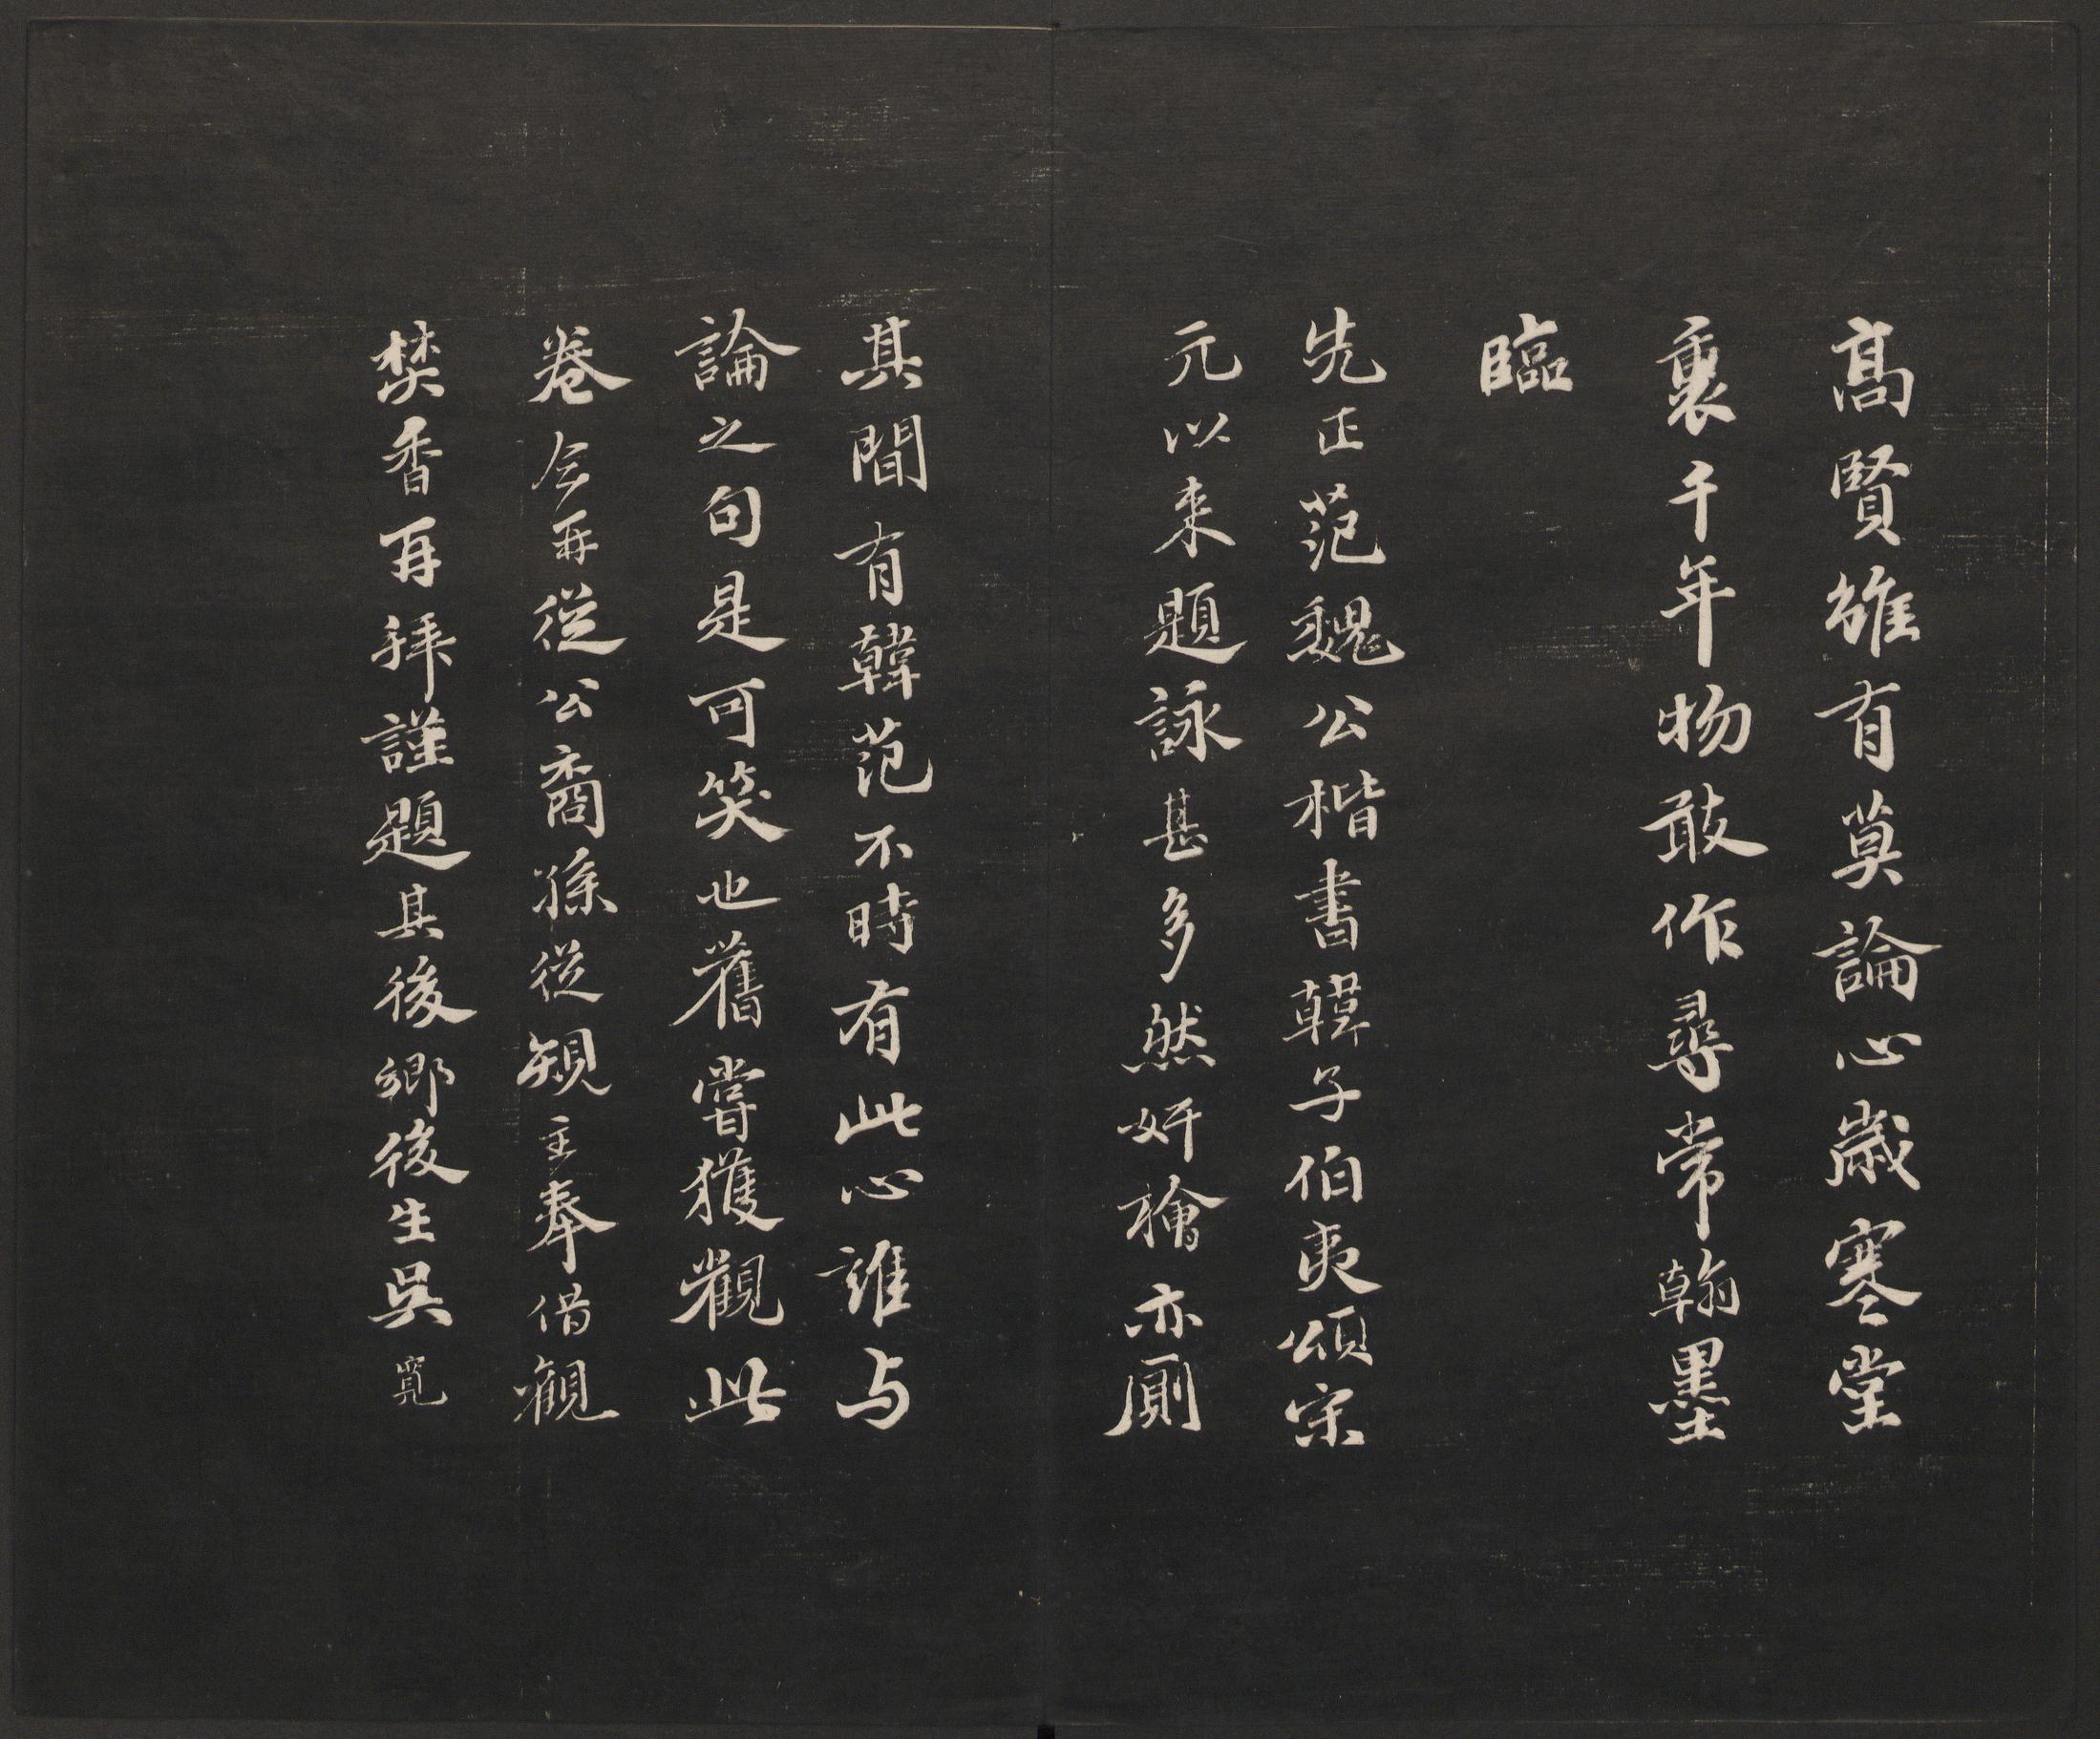 高賢雖有莫論心歲寒堂
裏千年物敢作尋常翰墨
臨
先正范魏公楷書韓子伯夷頌宋
元以来題詠甚多然奸檜亦廁
其間有韓范不時有此心誰与
論之句是可笑也舊嘗獲觀此
卷今再從公裔孫從規主奉借觀
焚香再拜謹題其後鄉後生吳寬